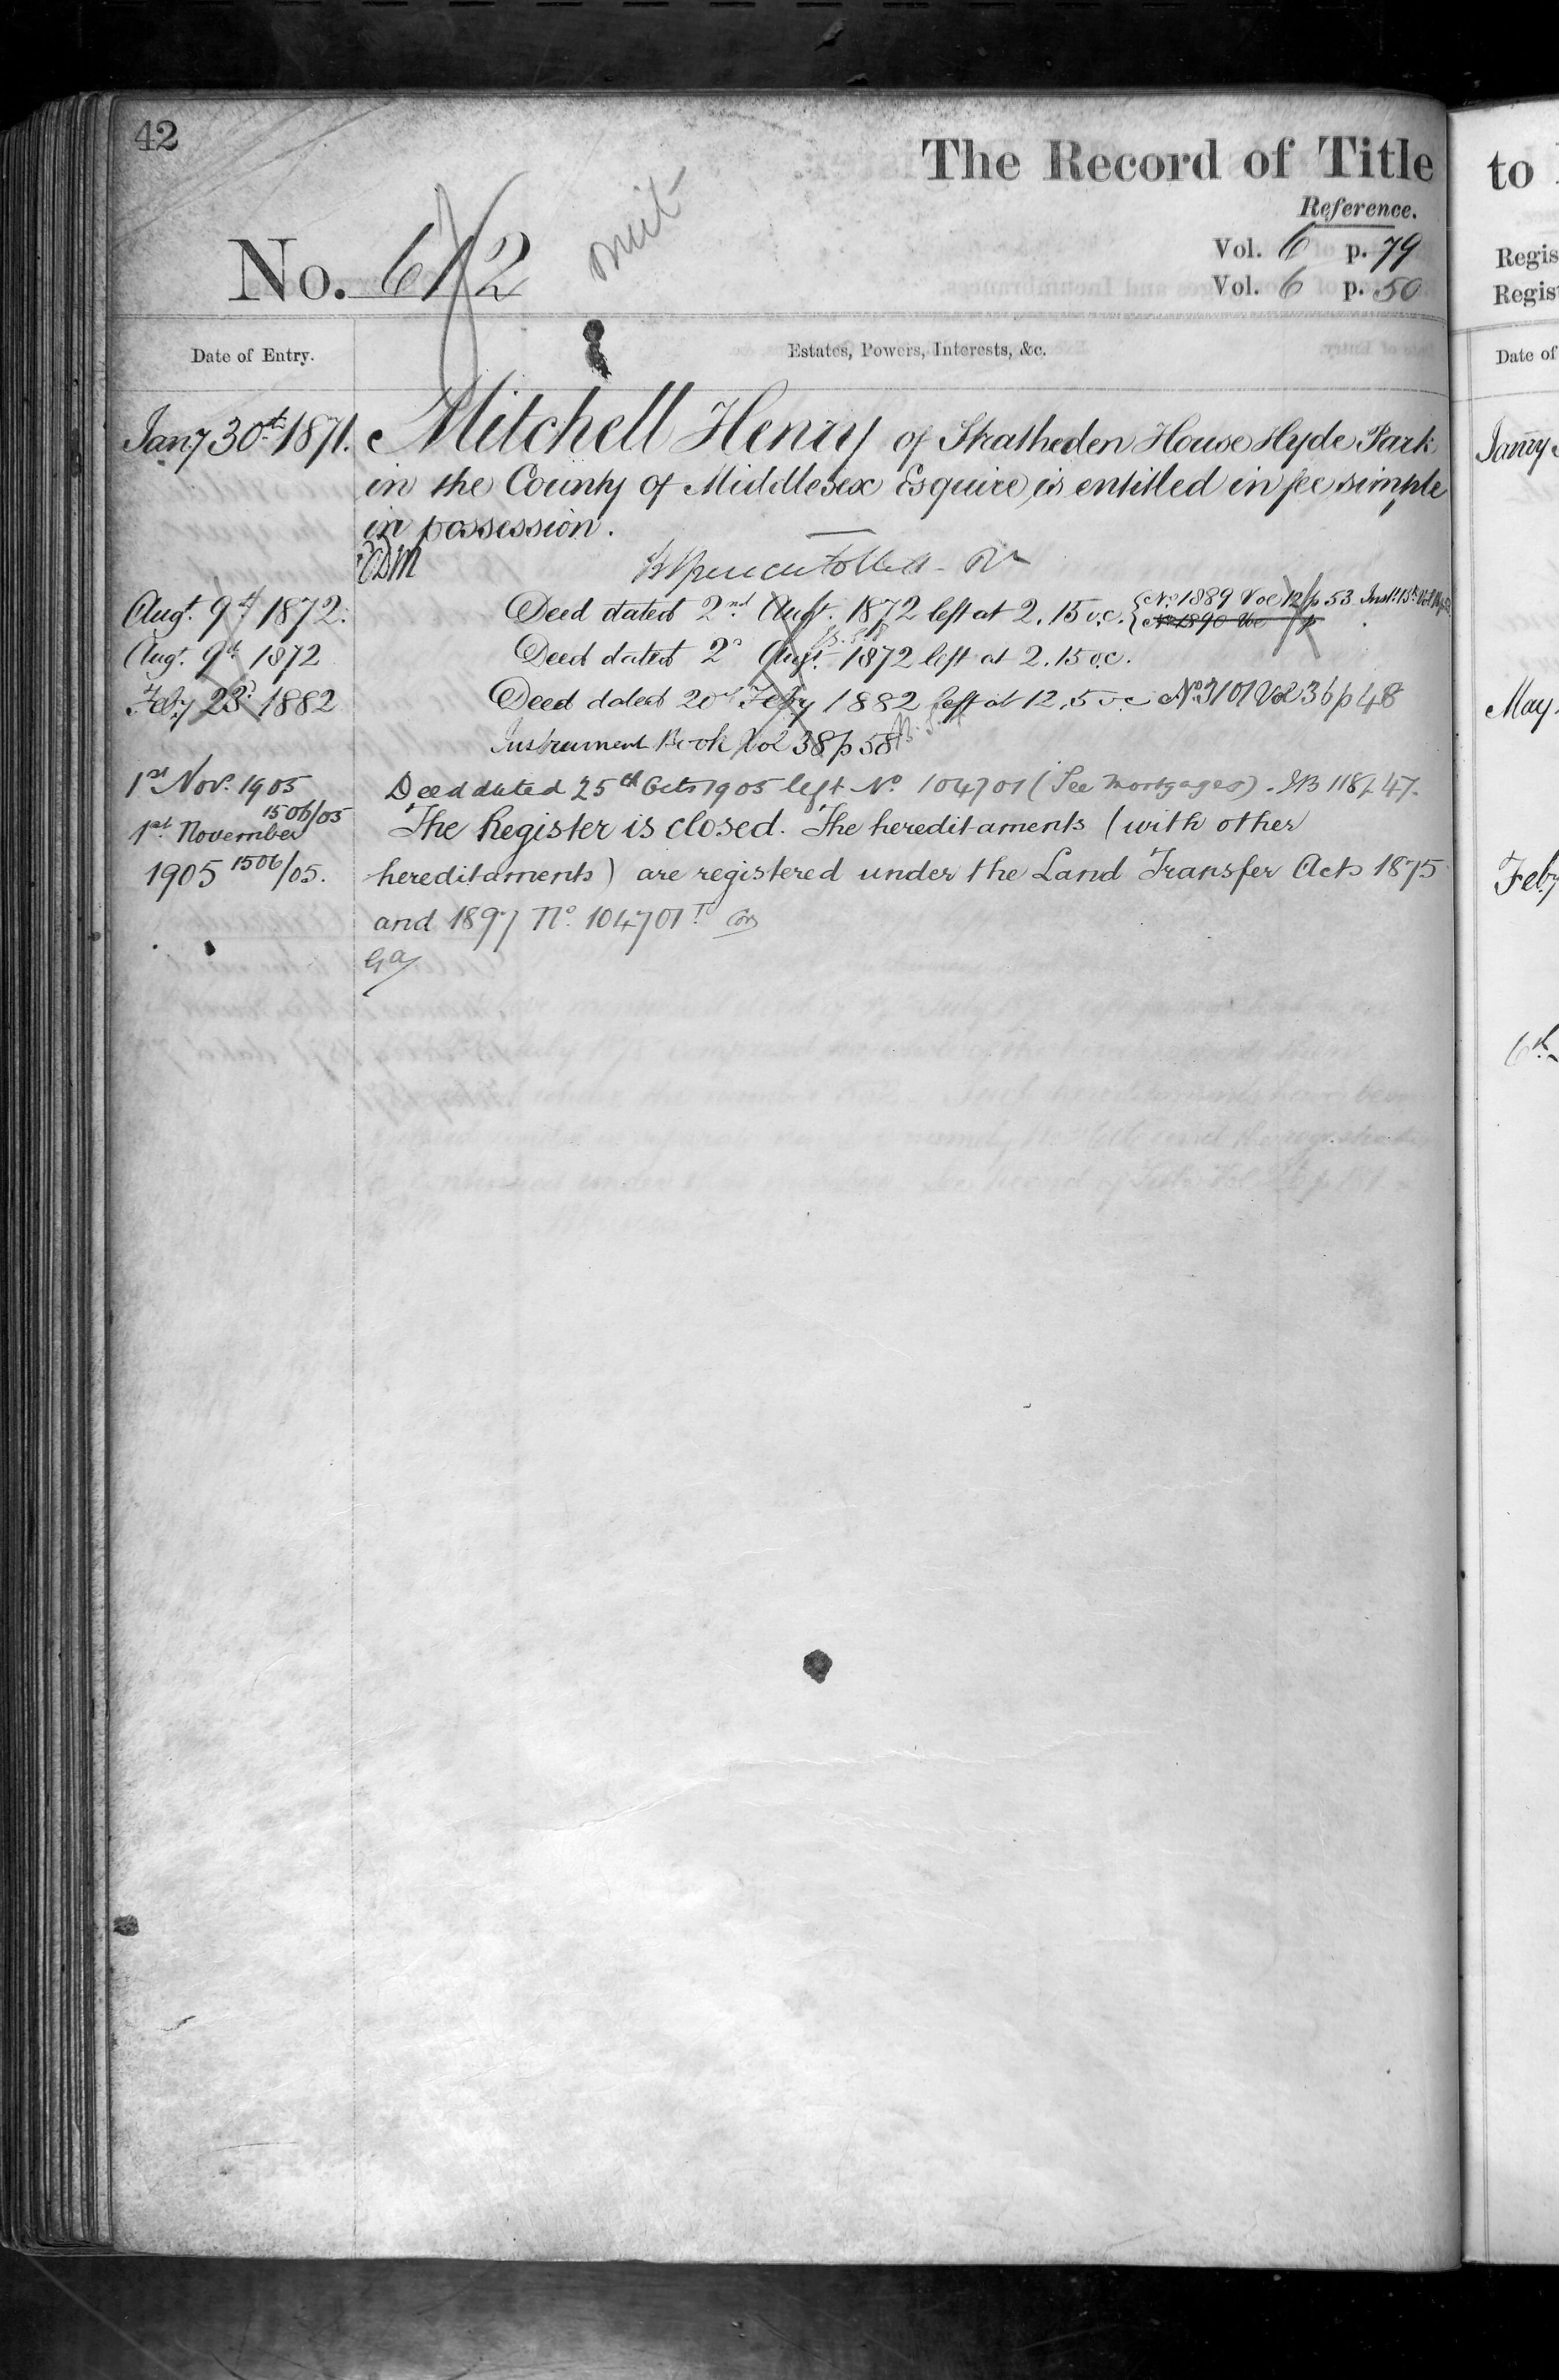 42
The Record of Title
Reference.
No. 612
Vol. 6 p. 79
Vol. 6 p. 50
Date of Entry.
Estates, Powers, Interests, &c.
Jany 30th 1871. Mitchell Henry of Stratheden House Hyde Park
in the County of Middlesex Esquire, is entitled in fee simple
in possession.
Augt. 9th 1872. Deed dated 2nd Augt. 1872 left at 2.15 o.c. { No. 1889 Vol 12 p 53
No 1890 Vol p
Augt. 9th 1872 Deed dated 2d Augt. 1872 left at 2.15 o.c.
Feby 23d 1882 Deed dated 20th Feby 1882 left at 12.5 o.c No. 3101 Vol 36 p 48
Instrument Book Vol 38 p 58
1st Nov. 1905 Deed dated 25th Octr 1905 left No 104701 (See Mortgages). IB 118/247.
1506/05
1st November The Register is closed. The hereditaments (with other
1905 1506/05. hereditaments) are registered under the Land Transfer Acts 1875
and 1897 No. 104701
to
Regis
Regist
Date of
Janry
May
Feby
6th